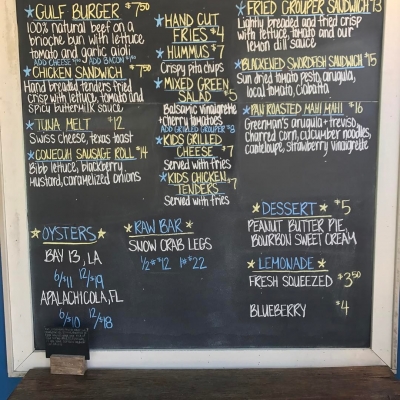 GULF BURGER $7.50
100% natural beef on a
brioche bun with lettuce,
tomato and garlic aioli
ADD CHEESE ADD BACON
CHICKEN SANDWICH $7.50
Hand breaded tenders fried
crisp with lettuce, tomato and
spicy buttermilk sauce
TUNA MELT $12
Swiss cheese, texas toast
CONECUH SAUSAGE ROLL $14
Bibb lettuce, blackberry
mustard, caramelized onions
HAND CUT
FRIES $4
HUMMUS $7
Crispy pita chips
MIXED GREEN
SALAD $5
Balsamic vinaigrette
+ cherry tomatoes
ADD GRILLED GROUPER $8
KIDS GRILLED
CHEESE $7
Served with fries
KIDS CHICKEN
TENDERS $7
Served with fries
FRIED GROUPER SANDWICH $13
Lightly breaded and fried crisp
with lettuce, tomato and our
lemon dill sauce
BLACKENED SWORDFISH SANDWICH $15
Sun dried tomato pesto, arugula,
local tomato, ciabatta
PAN ROASTED MAHI MAHI $16
Greenman's arugula + treviso,
charred corn, cucumber noodles,
canteloupe, strawberry vinaigrette
OYSTERS
BAY 13, LA
6/$11 12/$19
APALACHICOLA, FL
6/$10 12/$18
RAW BAR
SNOW CRAB LEGS
1/2# $12 1# $22
DESSERT $5
PEANUT BUTTER PIE,
BOURBON SWEET CREAM
LEMONADE
FRESH SQUEEZED $3.50
BLUEBERRY $4